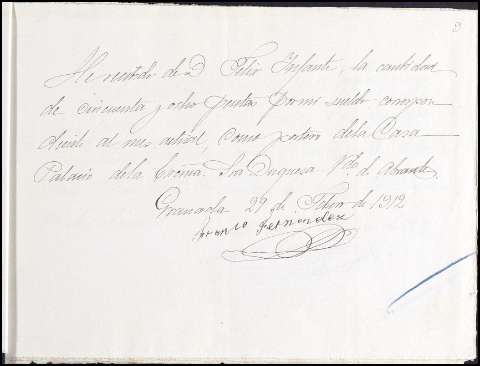 He recibido de D Felix Infante, la cantidad
de cincuenta y ocho pesetas por mi sueldo correspon
diente al mes actual, como portero de la Casa
Palacio de la Excma. Sra Duquesa Vda de Abrantes
Granada 29 de Febro de 1912
Fernandez